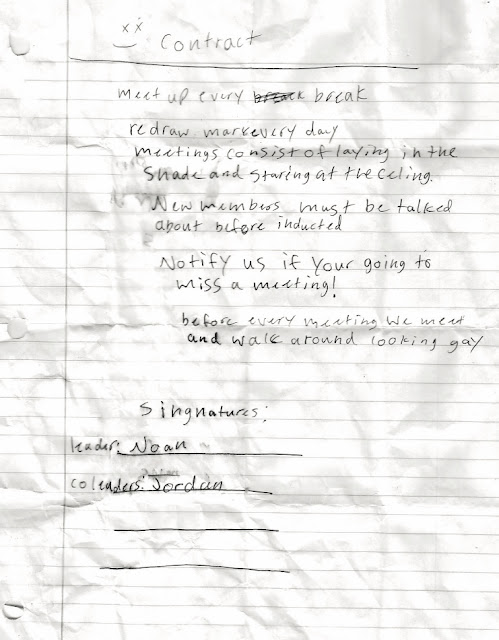 x x Contract
meet up every break
redraw mark every day
meetings consist of laying in the
Shade and staring at the celing.
New members must be talked
about before inducted
Notify us if your going to
miss a meeting!
before every meeting we meet
and walk around looking gay
Singnatures:
leader: Noah
coleaders: Jordan